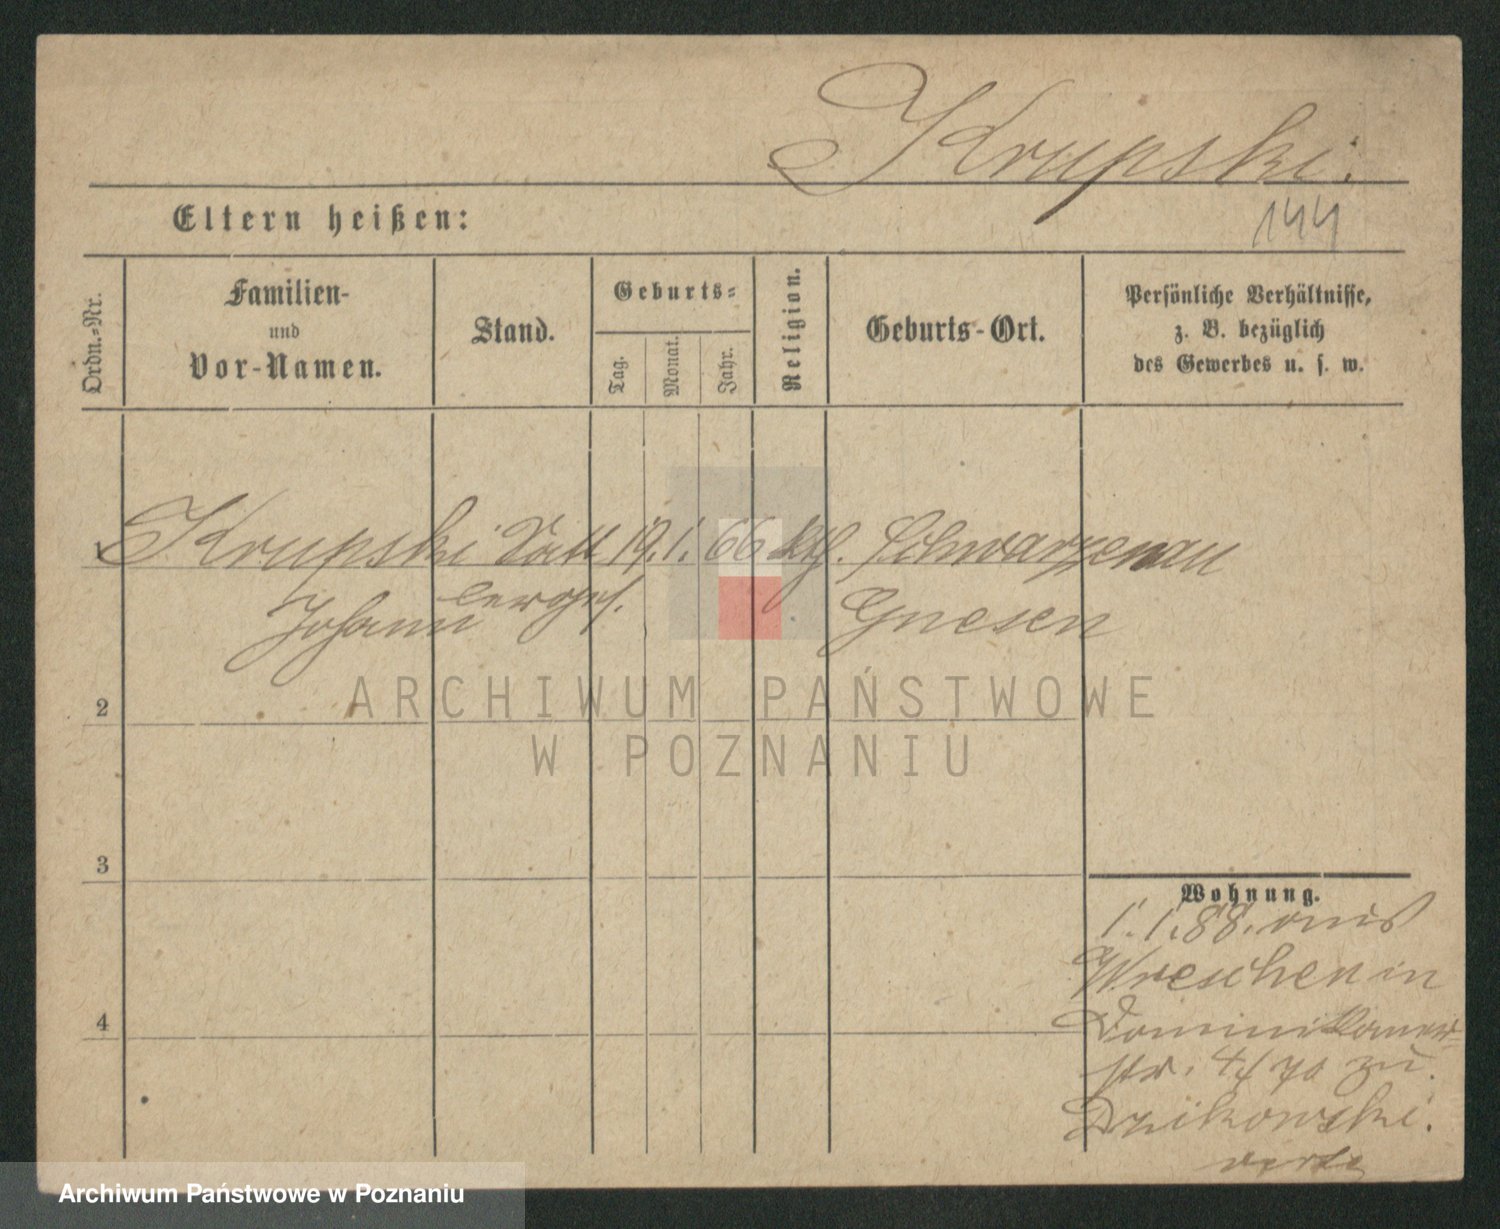 Krupski.
144
Eltern heißen:
Ordn.-Nr.
Familien-
und
Vor-Namen.
Stand.
Geburts-
Tag.
Monat.
Jahr.
Religion.
Geburts-Ort.
Persönliche Verhältnisse,
z. B. bezüglich
des Gewerbes u. s. w.
1 Krupski Satt 19. 1. 66 kth. Schwarzenau
Johann lerges. Gnesen
ARCHIWUM PAŃSTWOWE
2
W POZNANIU
3
Wohnung.
1. 1. 88. aus
Wreschen in
4
Dominikaner-
str. 4/ zu
Dzikowski.
verte
Archiwum Państwowe w Poznaniu